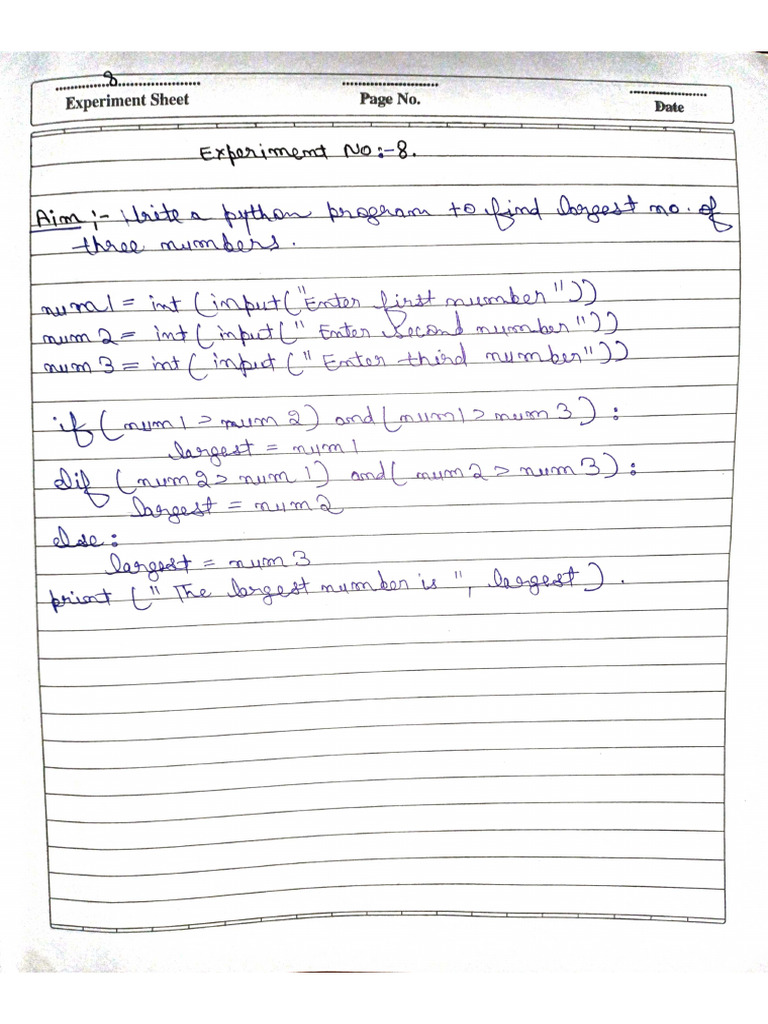 8
Experiment Sheet Page No. Date
Experiment No:-8.
Aim :- Write a python program to find largest no. of
three numbers.
num1 = int (input("Enter first number"))
num 2 = int( input(" Enter Second number"))
num 3 = int( input (" Enter third number"))
if (num 1 > num 2) and (num1 > num 3) :
largest = num 1
elif (num 2 > num 1) and( num 2 > num 3) :
largest = num 2
else :
largest = num 3
print (" The largest number is ", largest) .